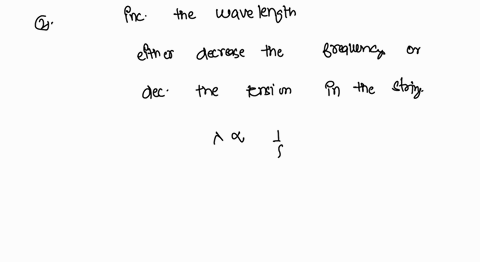 Q. inc. the wavelength
either decrease the frequency or
dec. the tension in the string.
λ ∝ 1/f